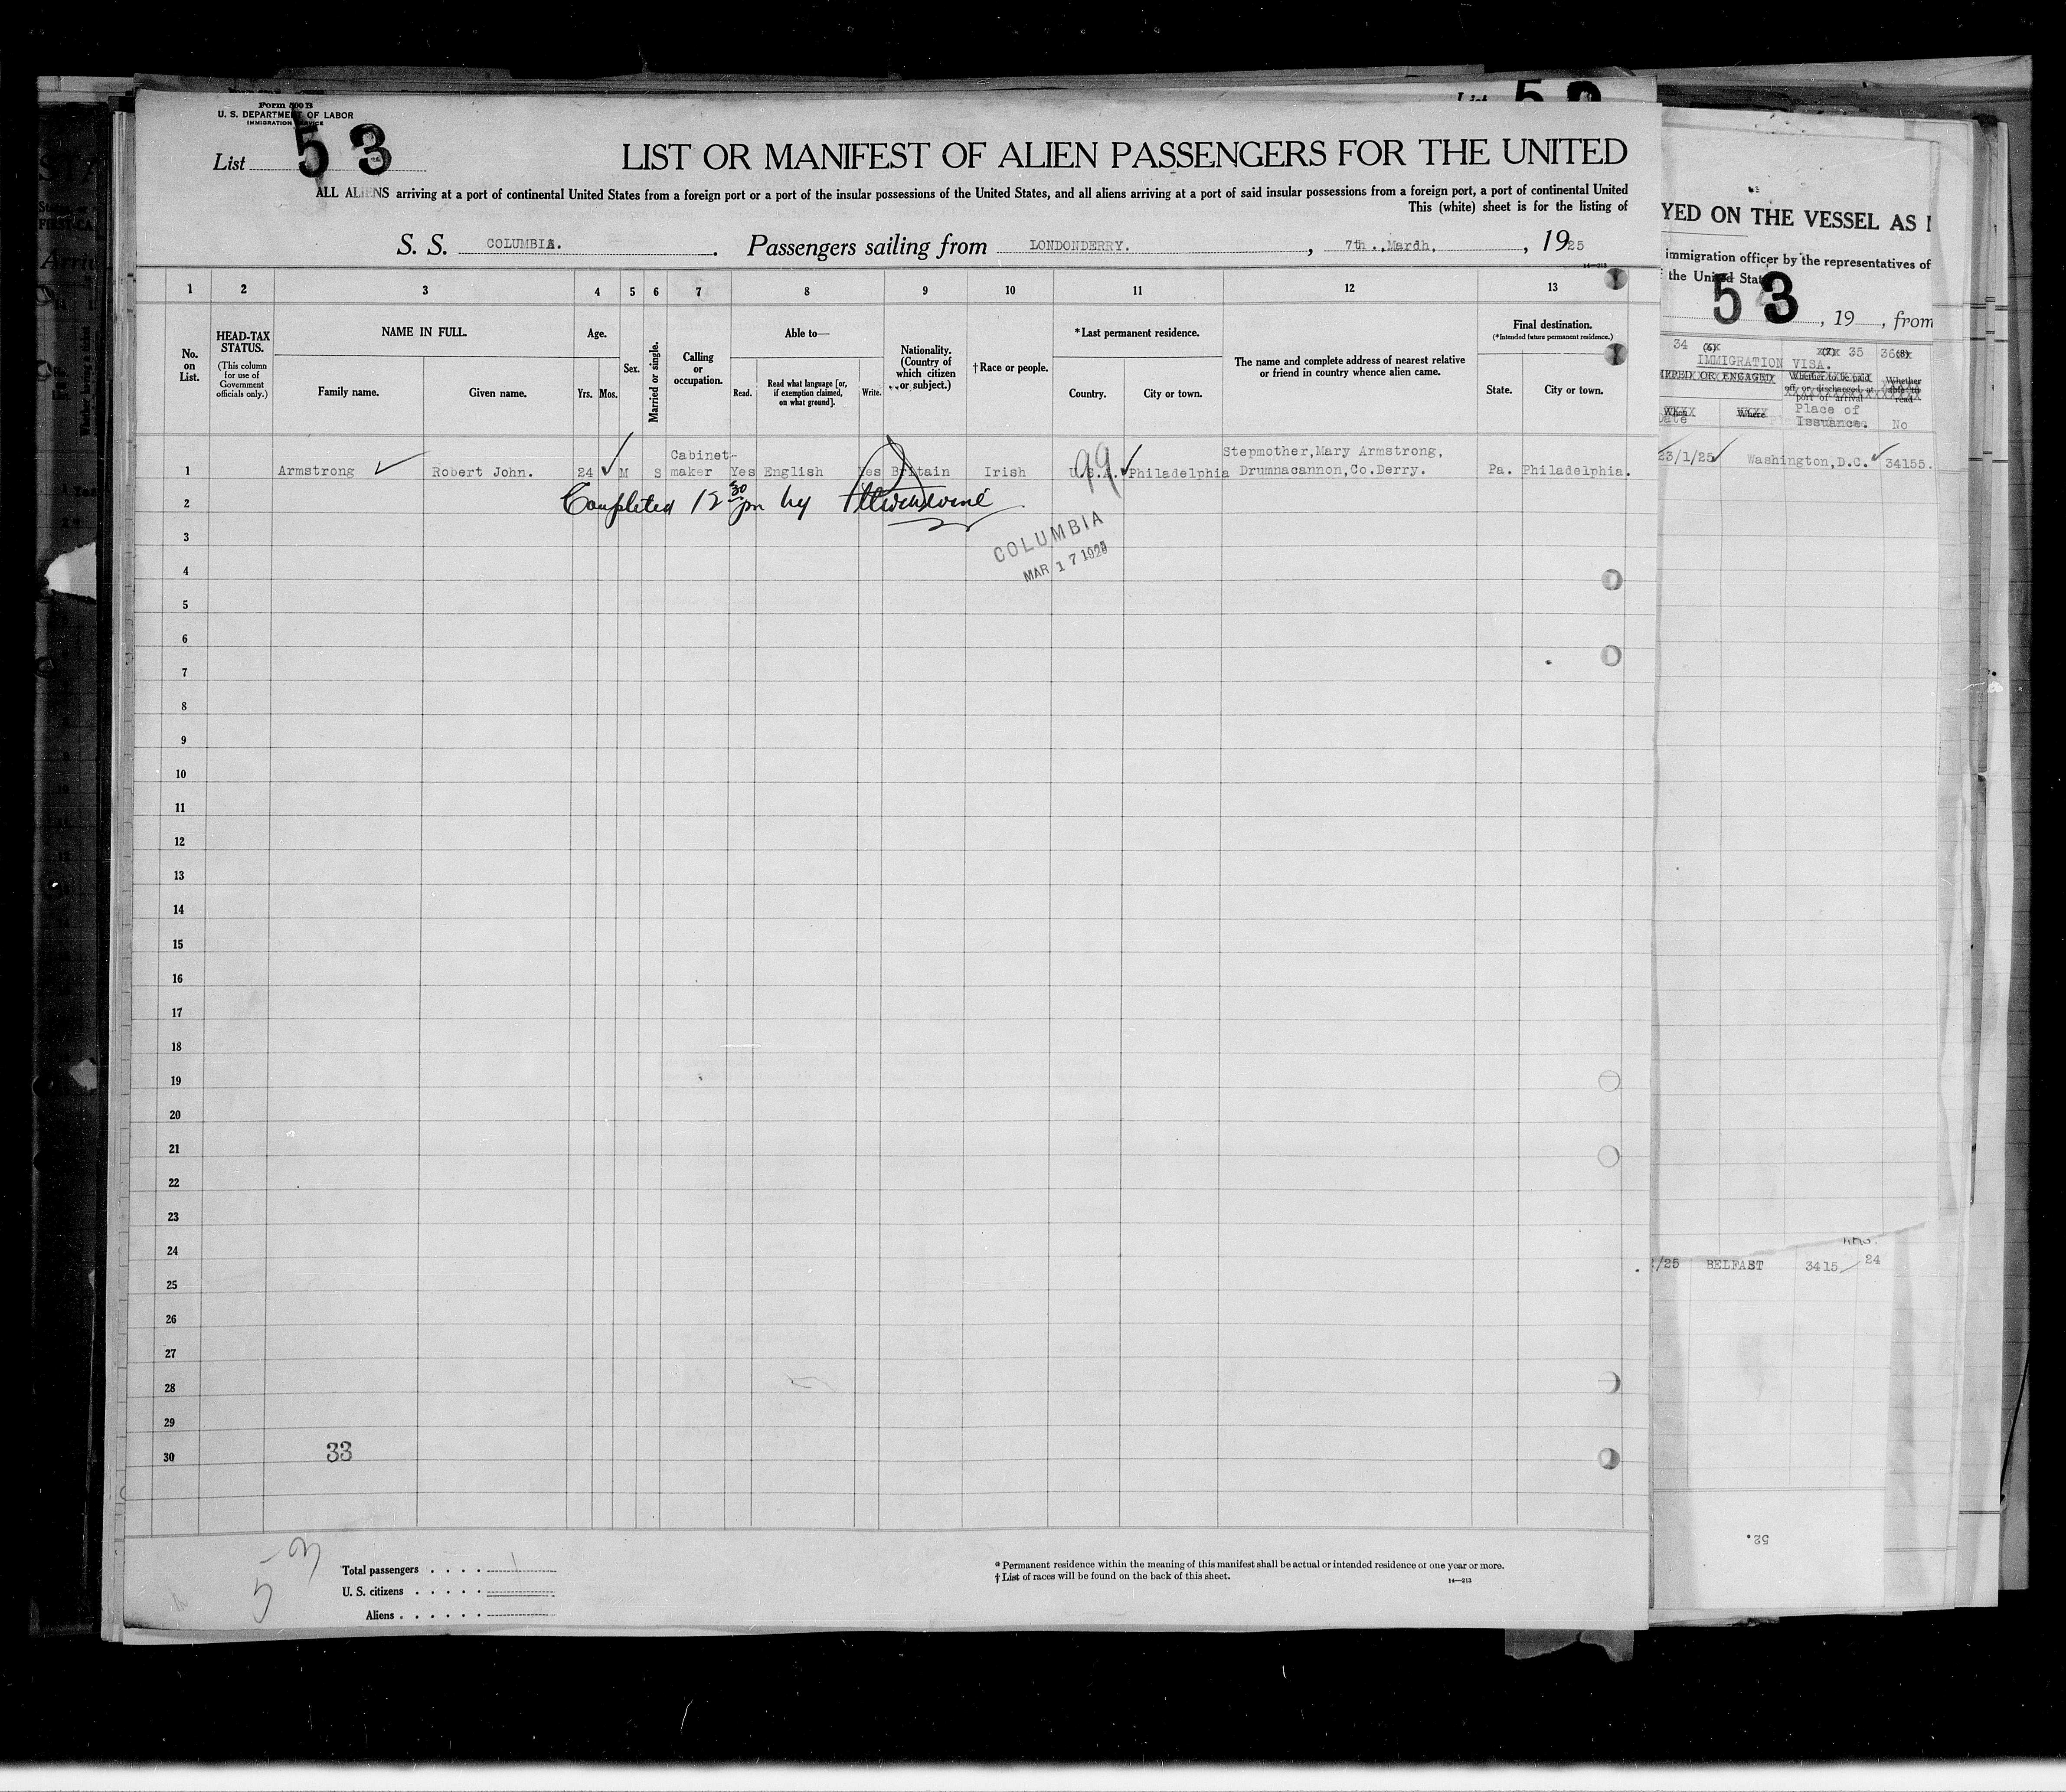 Form 500 B
U. S. DEPARTMENT OF LABOR
IMMIGRATION SERVICE
List 53
LIST OR MANIFEST OF ALIEN PASSENGERS FOR THE UNITED
ALL ALIENS arriving at a port of continental United States from a foreign port or a port of the insular possessions of the United States, and all aliens arriving at a port of said insular possessions from a foreign port, a port of continental United
This (white) sheet is for the listing of
S. S. COLUMBIA. Passengers sailing from LONDONDERRY. , 7th.,March, , 1925
1 2 3 4 5 6 7 8 9 10 11 12 13
No. on List.
HEAD-TAX STATUS.
(This column for use of Government officials only.)
NAME IN FULL.
Family name. Given name.
Age.
Yrs. Mos.
Sex.
Married or single.
Calling or occupation.
Able to—
Read. Read what language [or, if exemption claimed, on what ground]. Write.
Nationality. (Country of which citizen or subject.)
†Race or people.
*Last permanent residence.
Country. City or town.
The name and complete address of nearest relative or friend in country whence alien came.
Final destination.
(*Intended future permanent residence.)
State. City or town.
1 Armstrong Robert John. 24 M S Cabinet-maker Yes English Yes Britain Irish U.S.A. Philadelphia Stepmother,Mary Armstrong, Drumnacannon,Co.Derry. Pa. Philadelphia.
Completed 12 30 pm by
2
COLUMBIA
MAR 17 1925
3
4
5
6
7
8
9
10
11
12
13
14
15
16
17
18
19
20
21
22
23
24
25
26
27
28
29
30
33
53
Total passengers 1
U. S. citizens
Aliens
* Permanent residence within the meaning of this manifest shall be actual or intended residence of one year or more.
† List of races will be found on the back of this sheet.
14—213
YED ON THE VESSEL AS
immigration officer by the representatives of
the United Stat
53 , 19 , from
34 (6) (7) 35 36 (8)
IMMIGRATION VISA.
SHIPPED OR ENGAGED
Whether to be paid off or discharged at port of arrival
Whether able to read
When Where
Date Place of Issuance. No
23/1/25 Washington,D.C. 34155.
/25 BELFAST 3415 24
52.